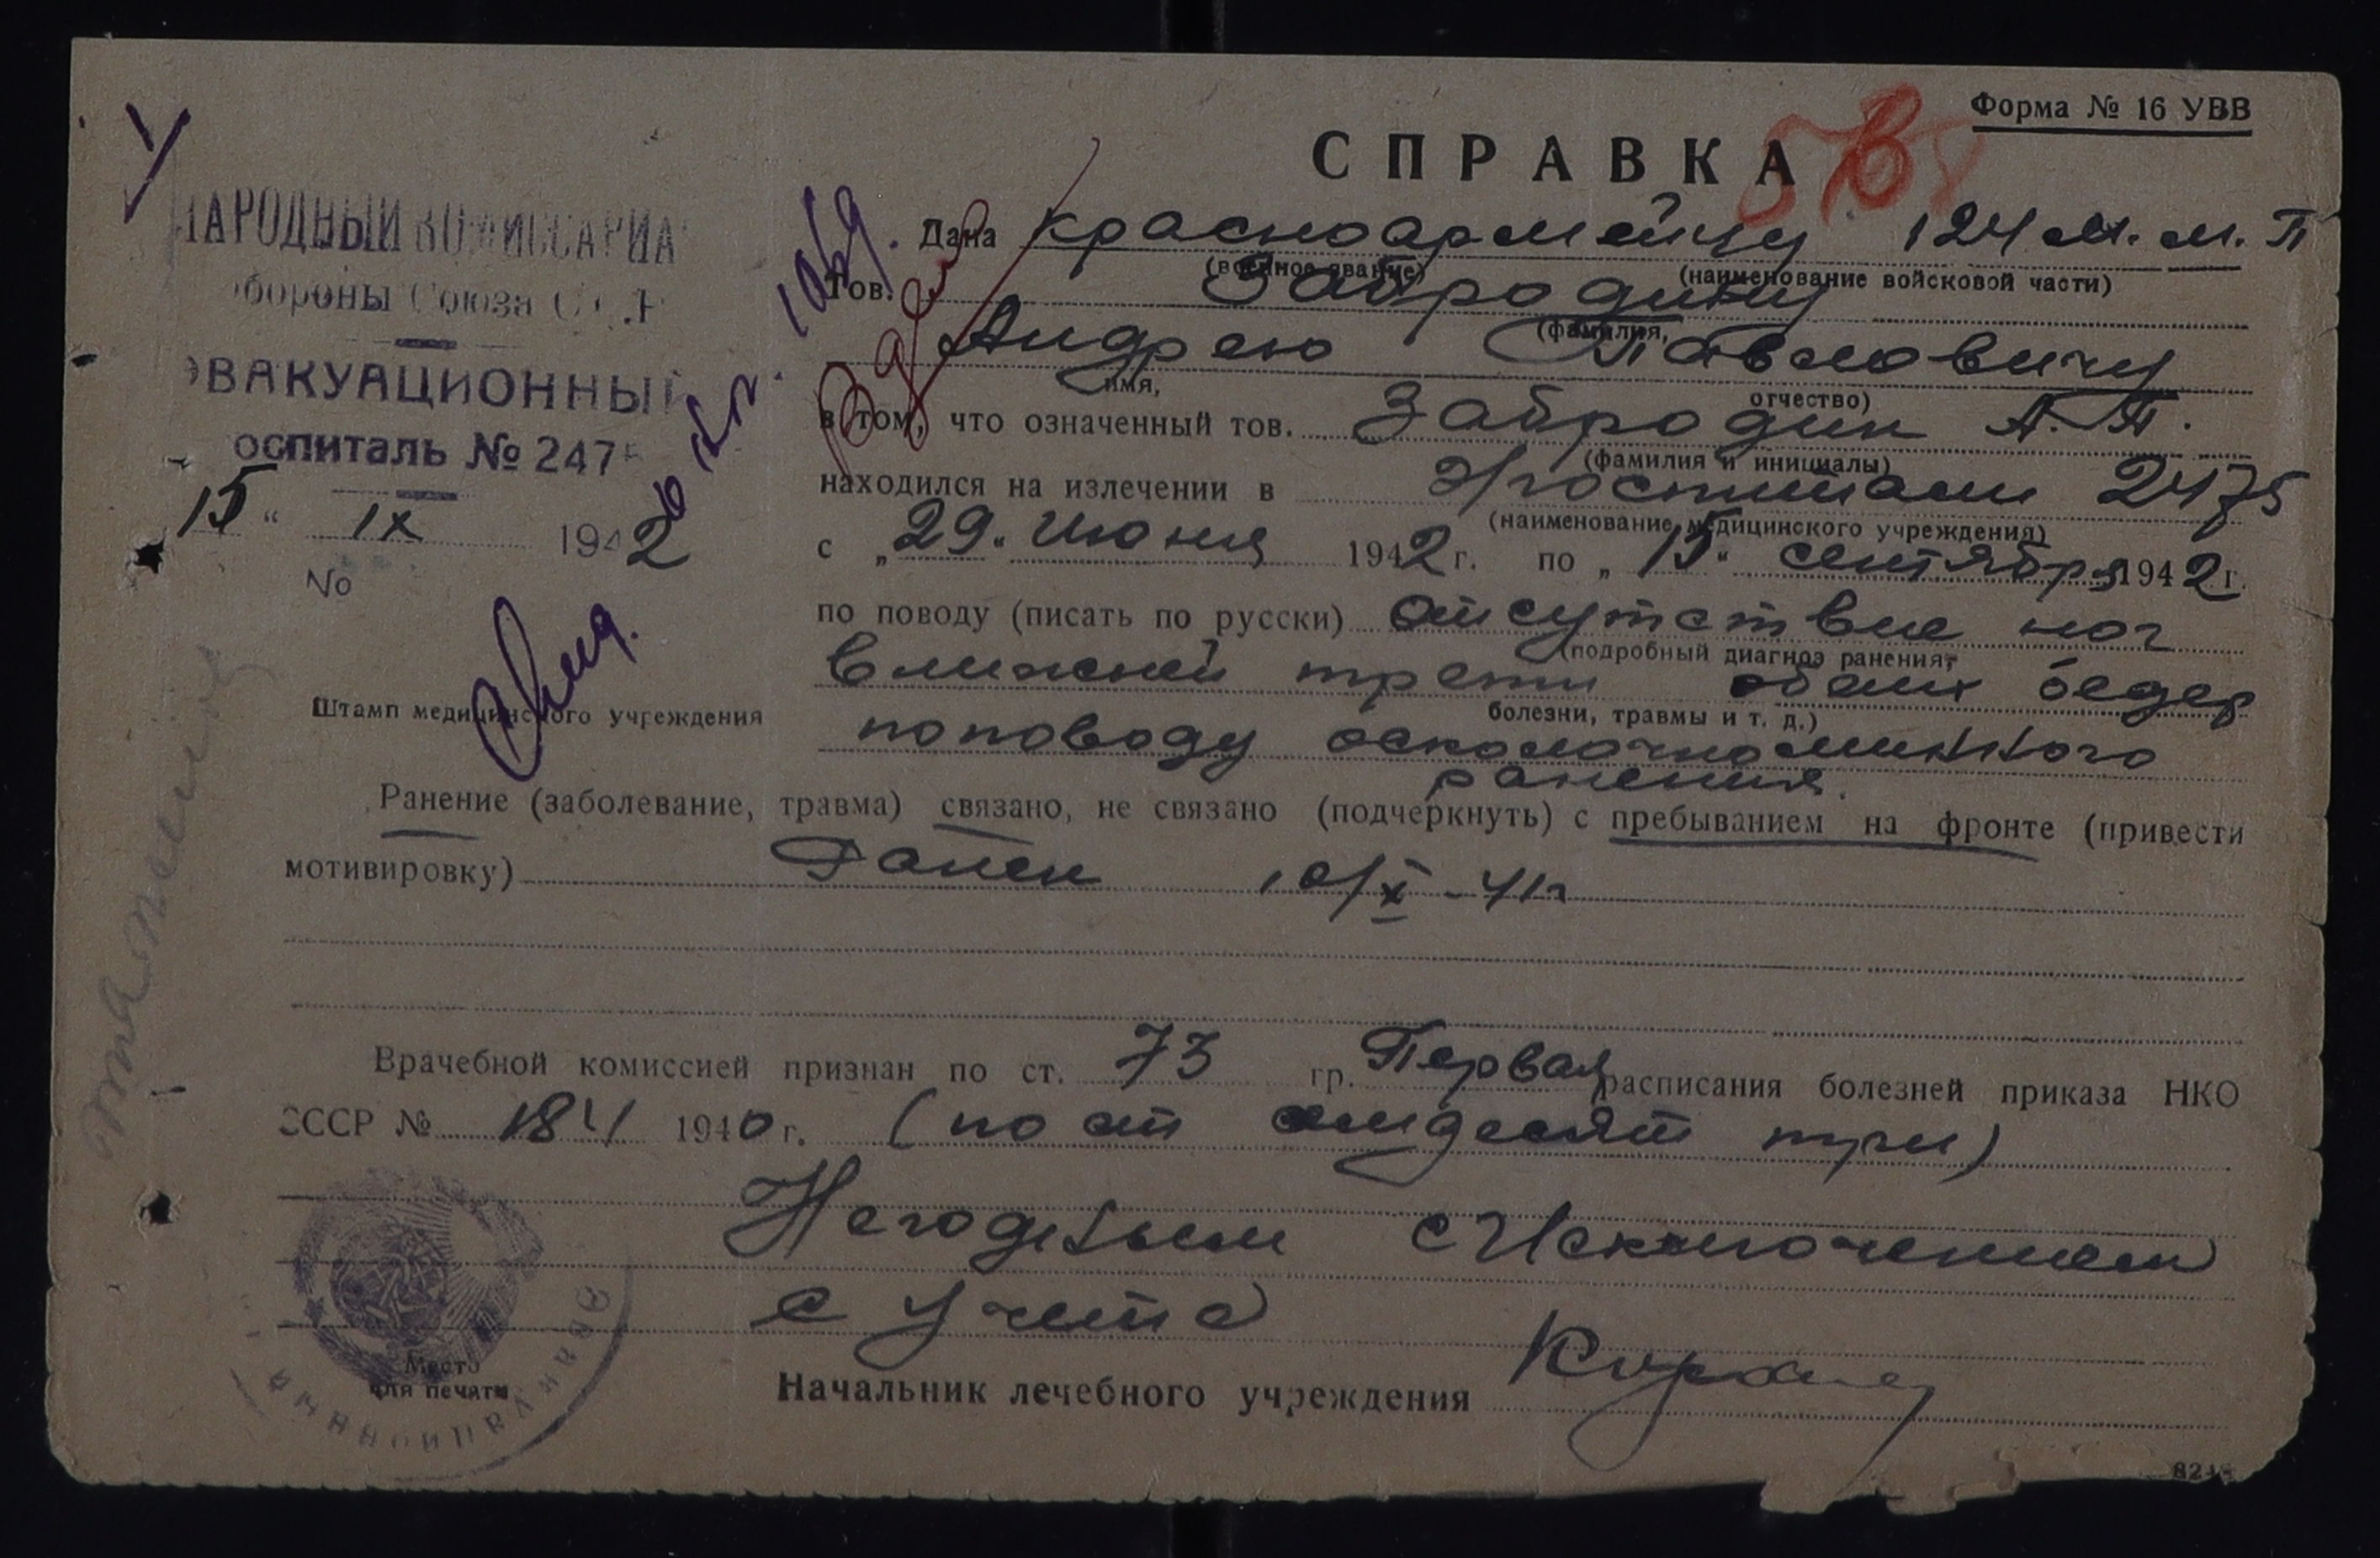 Форма № 16 УВВ
СПРАВКА
НАРОДНЫЙ КОМИССАРИАТ
обороны Союза ССР
ЭВАКУАЦИОННЫЙ
госпиталь № 2475
15 " IX 1942
№
Штамп медицинского учреждения
Дана красноармейцу 124 м. м. П
(военное звание) (наименование войсковой части)
Тов. Забродину
(фамилия,
Андрею Павловичу
имя, отчество)
в том, что означенный тов. Забродин А. П.
(фамилия и инициалы)
находился на излечении в Госпитали 2475
(наименование медицинского учреждения)
с „29" Июня 1942 г. по „15" сентября 1942 г.
по поводу (писать по русски) отсутствие ног
(подробный диагноз ранения,
в нижней трети обеих бедер
болезни, травмы и т. д.)
поповоду осколочноминного
ранения.
Ранение (заболевание, травма) связано, не связано (подчеркнуть) с пребыванием на фронте (привести
мотивировку) Ранен 10/X-41г
Врачебной комиссией признан по ст. 73 гр. Первая расписания болезней приказа НКО
СССР № 184 1940 г. (по ст семдесят три)
Негодным с Исключением
с учета
Место
для печати
Начальник лечебного учреждения